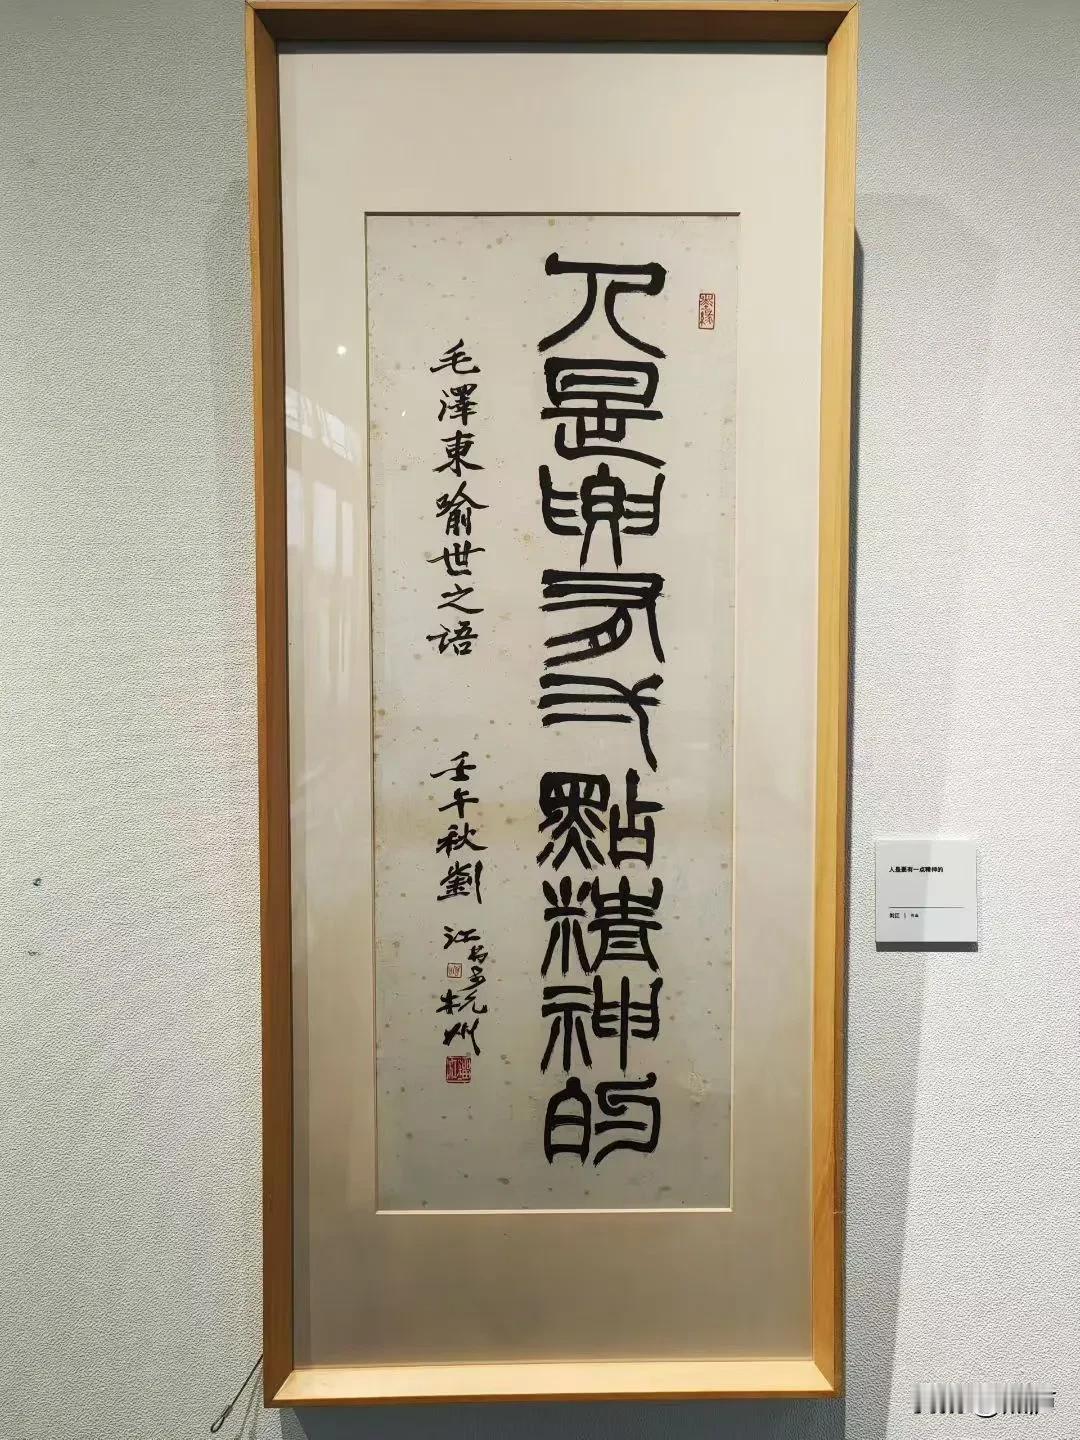 墨緣
人是要有弌點精神的
毛澤東喻世之语
壬午秋劉江书于杭州
人是要有一点精神的
刘江 |